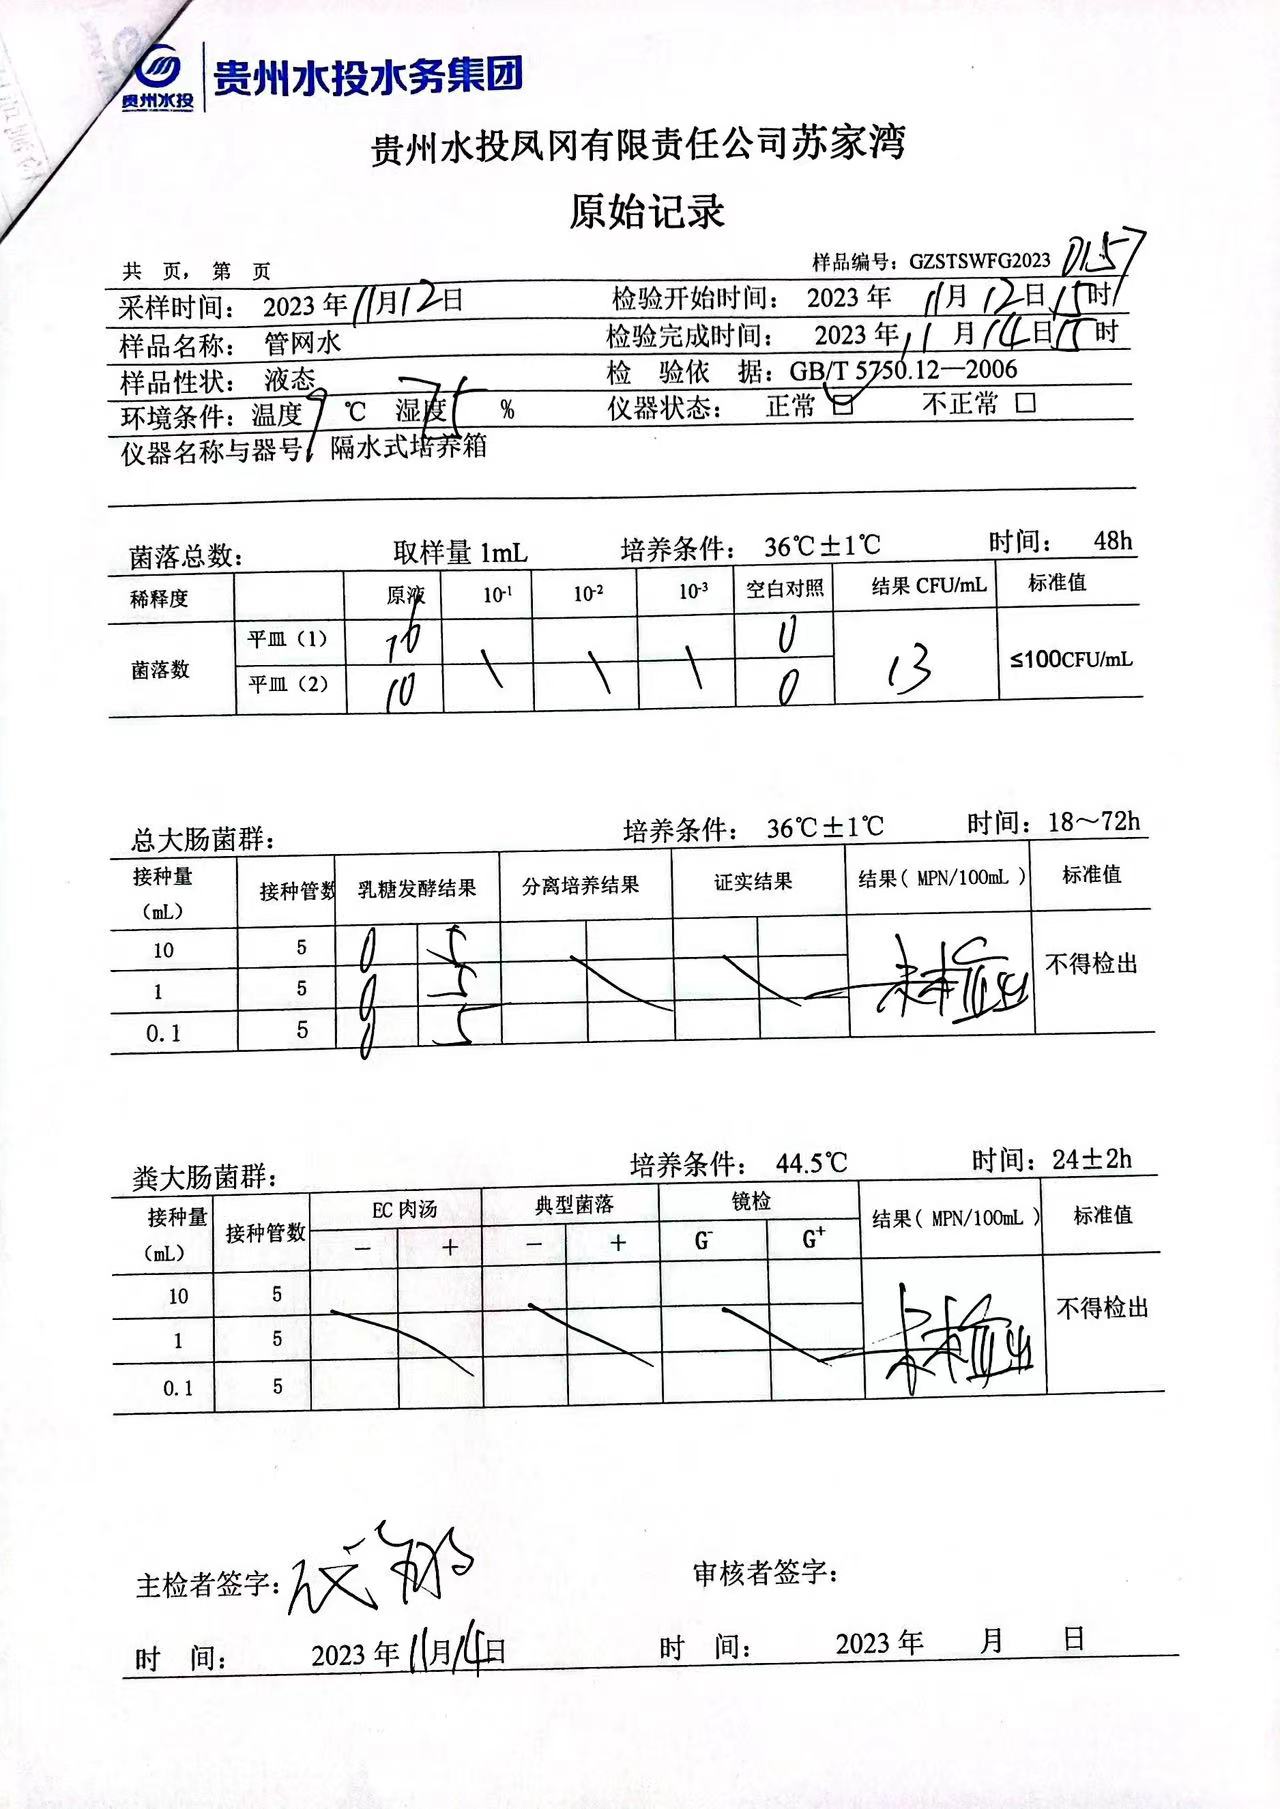 贵州水投 贵州水投水务集团
贵州水投凤冈有限责任公司苏家湾
原始记录
共 页， 第 页 样品编号：GZSTSWFG2023 0157
采样时间： 2023年11月12日 检验开始时间： 2023年 11月12日15时
样品名称： 管网水 检验完成时间： 2023年11月14日15时
样品性状： 液态 检 验依 据：GB/T 5750.12—2006
环境条件：温度9℃ 湿度75% 仪器状态： 正常 ☑ 不正常 □
仪器名称与器号 隔水式培养箱
菌落总数： 取样量 1mL 培养条件： 36℃±1℃ 时间： 48h
稀释度 原液 10-1 10-2 10-3 空白对照 结果 CFU/mL 标准值
菌落数 平皿（1） 16 \ \ \ 0 13 ≤100CFU/mL
平皿（2） 10 0
总大肠菌群： 培养条件： 36℃±1℃ 时间：18～72h
接种量（mL） 接种管数 乳糖发酵结果 分离培养结果 证实结果 结果（MPN/100mL） 标准值
10 5 0 5 未检出 不得检出
1 5 0 5
0.1 5 0 5
粪大肠菌群： 培养条件： 44.5℃ 时间：24±2h
接种量（mL） 接种管数 EC肉汤 典型菌落 镜检 结果（MPN/100mL） 标准值
— + — + G- G+
10 5 未检出 不得检出
1 5
0.1 5
主检者签字： 审核者签字：
时 间： 2023年11月14日 时 间： 2023年 月 日